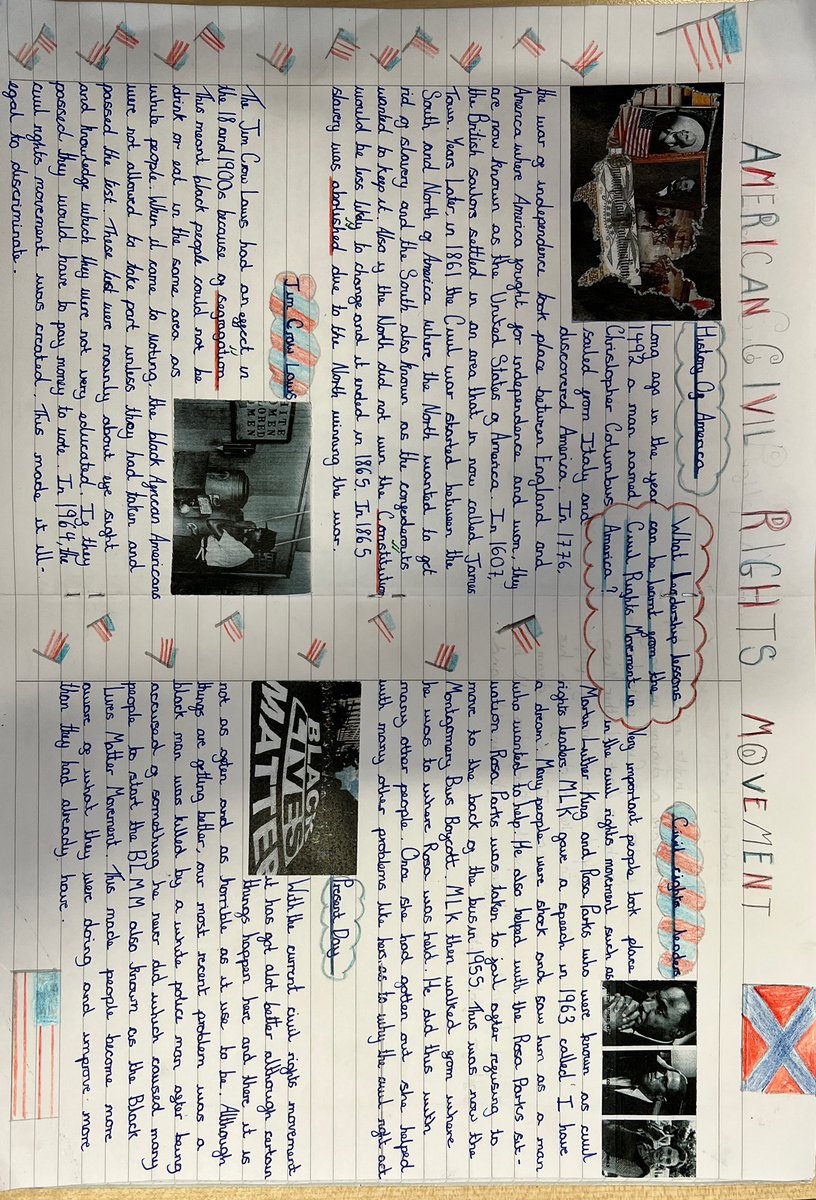 AMERICAN CIVIL RIGHTS MOVEMENT
History Of America
Long ago in the year
1492 a man named
Christopher Columbus
sailed from Italy and
discovered America. In 1776,
the war of independence took place between England and
America where America fought for independence and won, they
are now known as the United States of America. In 1607,
the British sailors settled in an area that in now called James
Town. Years Later, in 1861 the Civil war started between the
South and North of America where the North wanted to get
rid of slavery and the South also known as the confederates
wanted to keep it. Also if the North did not win the Constitution
would be less likely to change and it ended in 1865. In 1865
slavery was abolished due to the North winning the war.
Jim Crow Laws
The Jim Crow Laws had an effect in
the 18 and 1900s because of segregation
This meant black people could not be
drink or eat in the same area as
white people. When it came to voting, the black African Americans
were not allowed to take part unless they had taken and
passed the test. These test were mainly about eye sight
and knowledge which they were not very educated. If they
passed they would have to pay money to vote. In 1964, the
civil rights movement was created. This made it ill-
egal to discriminate.
What leadership lessons
can be learnt from the
Civil Rights Movement in
America?
Civil rights leaders
Very important people took place
in the civil rights movement such as
Martin Luther King and Rosa Parks who were known as civil
rights leaders. MLK gave a speech in 1963 called 'I have
a dream'. Many people were shock and saw him as a man
who wanted to help. He also helped with the Rosa Parks sit-
uation. Rosa Parks was taken to jail after refusing to
move to the back of the bus in 1955. This was now the
Montgomery Bus Boycott. MLK then walked from where
he was to where Rosa was held. He did this with
many other people. Once she had gotten out she helped
with many other problems like hers as to why the civil right act
Present Day
With the current civil rights movement
it has got alot better although certain
things happen here and there it is
not as often and as horrible as it use to be. Although
things are getting better, our most recent problem was a
black man was killed by a white police man after being
accused of something he never did which caused many
people to start the BLMM also known as the Black
Lives Matter Movement. This made people become more
aware of what they were doing and improve more
than they had already have.
BLACK
LIVES
MATTER
WHITE
MEN
COLORED
MEN